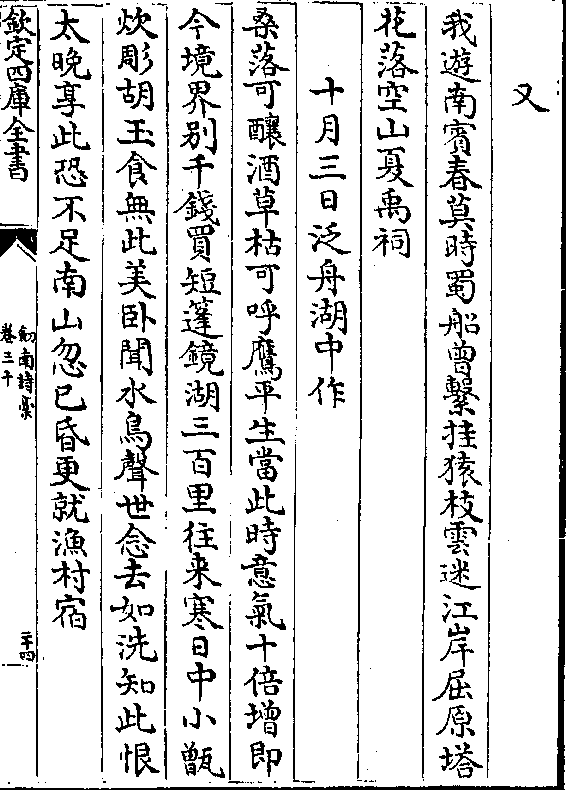 又
我遊南賓春莫時蜀船曾繫挂猿枝雲迷江岸屈原塔
花落空山夏禹祠
十月三日泛舟湖中作
桑落可釀酒草枯可呼鷹平生當此時意氣十倍增即
今境界别千錢買短蓬鏡湖三百里往来寒日中小甑
炊彫胡玉食無此美卧聞水鳥聲世念去如洗知此恨
太晚享此恐不足南山忽已昏更就漁村宿
欽定四庫全書
劍南詩稾
卷三十
二十四